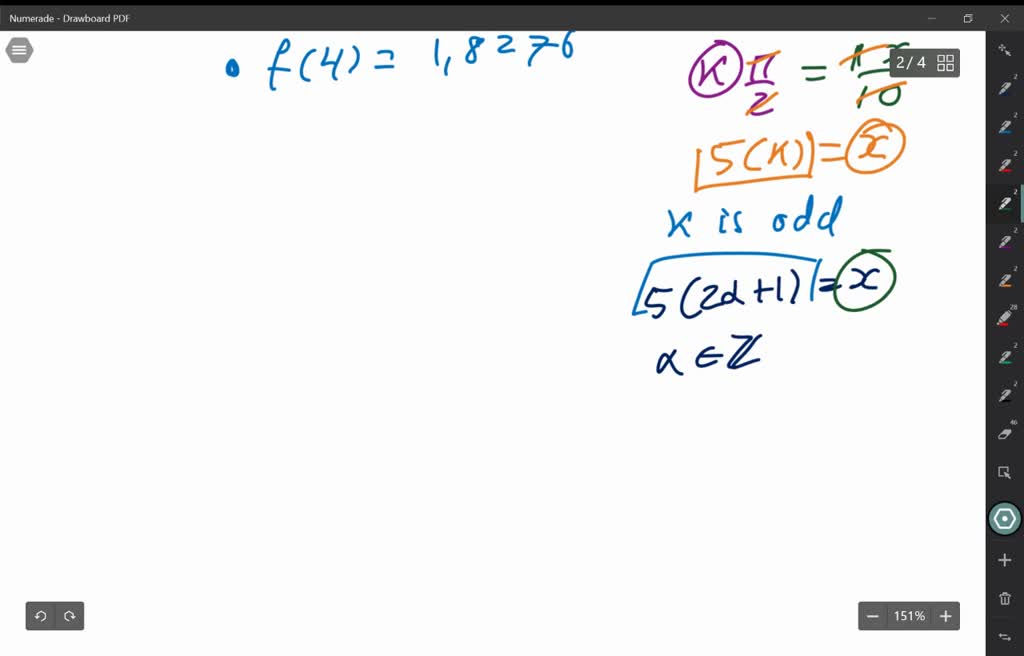 Numerade - Drawboard PDF
• f(4) = 1,8276
2 / 4
K π/2 = πx/10
5(K) = x
K is odd
5(2α+1) = x
α ∈ ℤ
151%
2
2
2
2
2
2
28
2
2
46